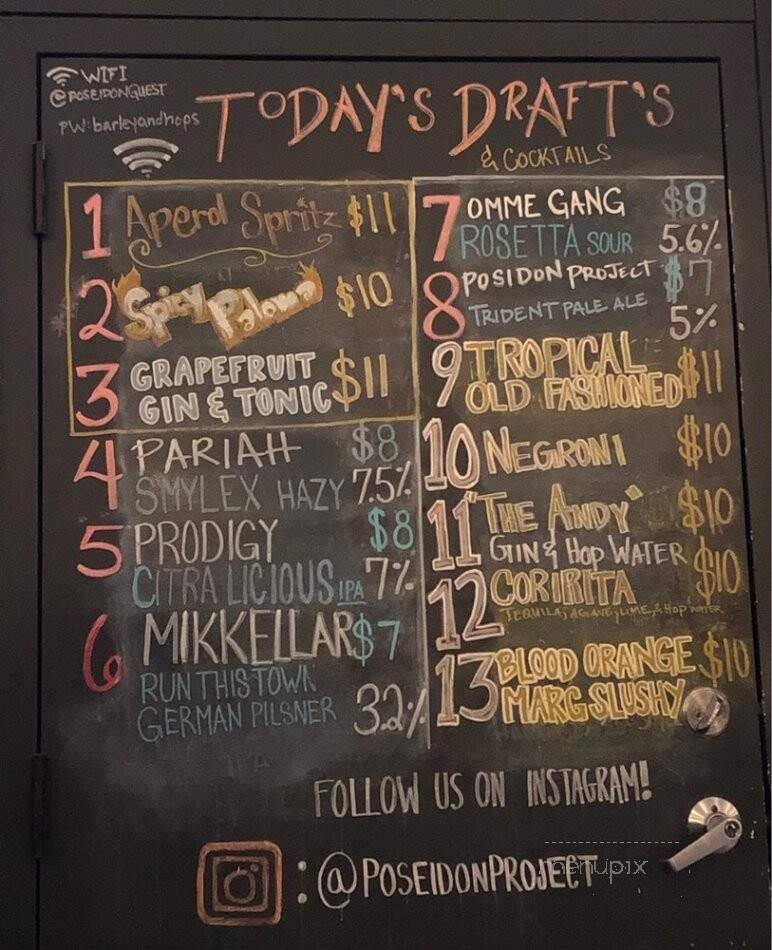 WIFI
@POSEIDONGUEST
PW: barleyandhops
TODAY'S DRAFT'S
& COCKTAILS
1 Aperol Spritz $11
2 Spicy Paloma $10
3 GRAPEFRUIT $11
GIN & TONIC
4 PARIAH $8
SMYLEX HAZY 7.5%
5 PRODIGY $8
CITRA LICIOUS IPA 7%
6 MIKKELLAR $7
RUN THIS TOWN
GERMAN PILSNER 3.2%
7 OMME GANG $8
ROSETTA SOUR 5.6%
8 POSIDON PROJECT $7
TRIDENT PALE ALE 5%
9 TROPICAL $11
OLD FASHIONED
10 NEGRONI $10
11 "THE ANDY" $10
GIN & HOP WATER
12 CORIRITA $10
TEQUILA, AGAVE, LIME, & HOP WATER
13 BLOOD ORANGE $10
MARG SLUSHY
FOLLOW US ON INSTAGRAM!
: @POSEIDONPROJECT
menupix